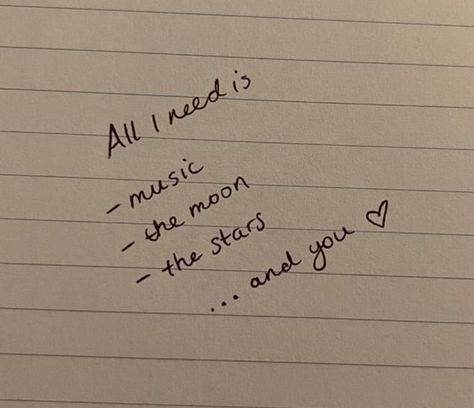 All I need is
- music
- the moon
- the stars
... and you ♡